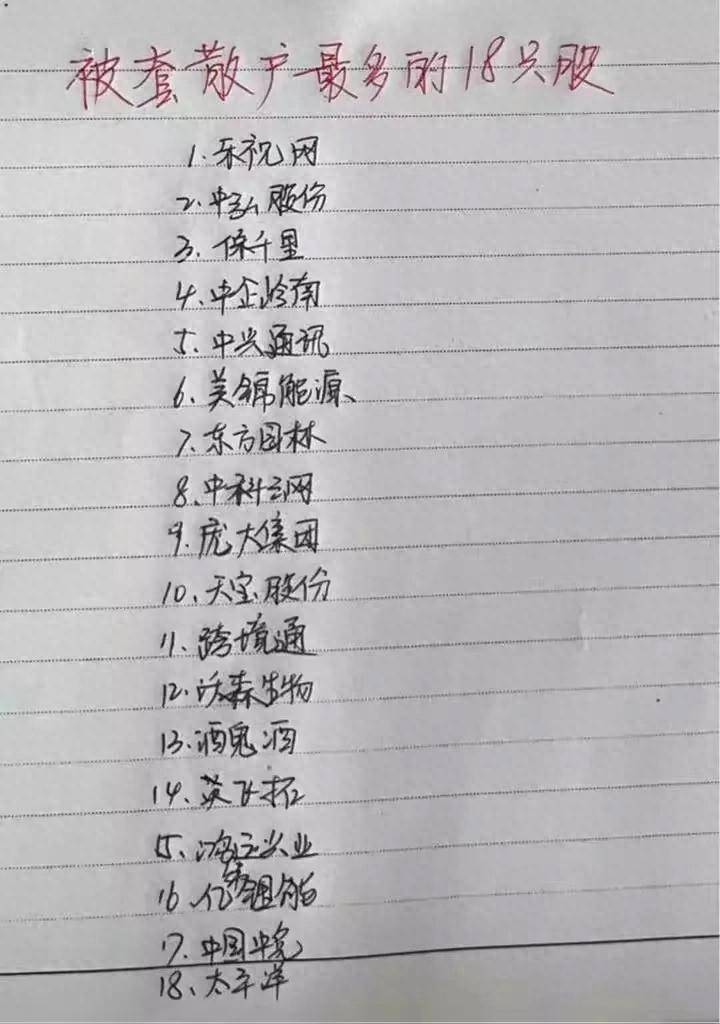 被套散户最多的18只股
1.乐视网
2.中弘股份
3.保千里
4.中企岭南
5.中兴通讯
6.美锦能源、
7.东方园林
8.中科云网
9.庞大集团
10.天宝股份
11.跨境通
12.沃森生物
13.酒鬼酒
14.英飞拓
15、鸿达兴业
16、亿纬锂能
17.中国中免
18、太平洋